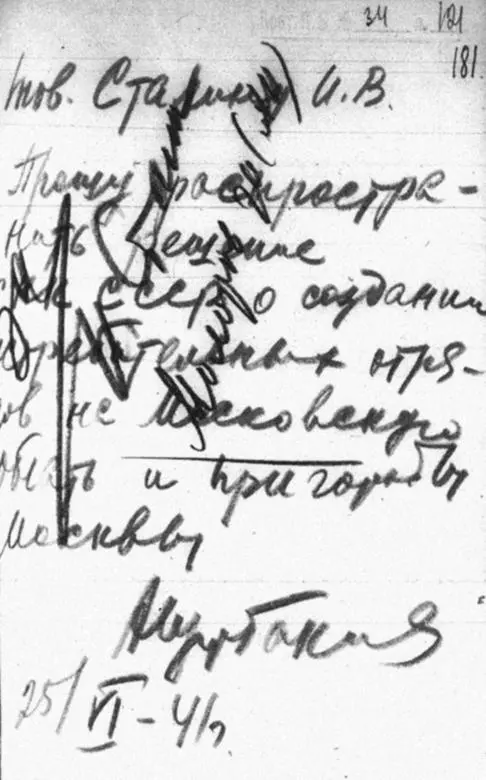 34 121
181
тов. Сталину И.В.
Прошу распростра-
нить решение
СНК СССР о создании
истребительных отря-
дов на Московскую
область и пригороды
Москвы
25/VI-41г.